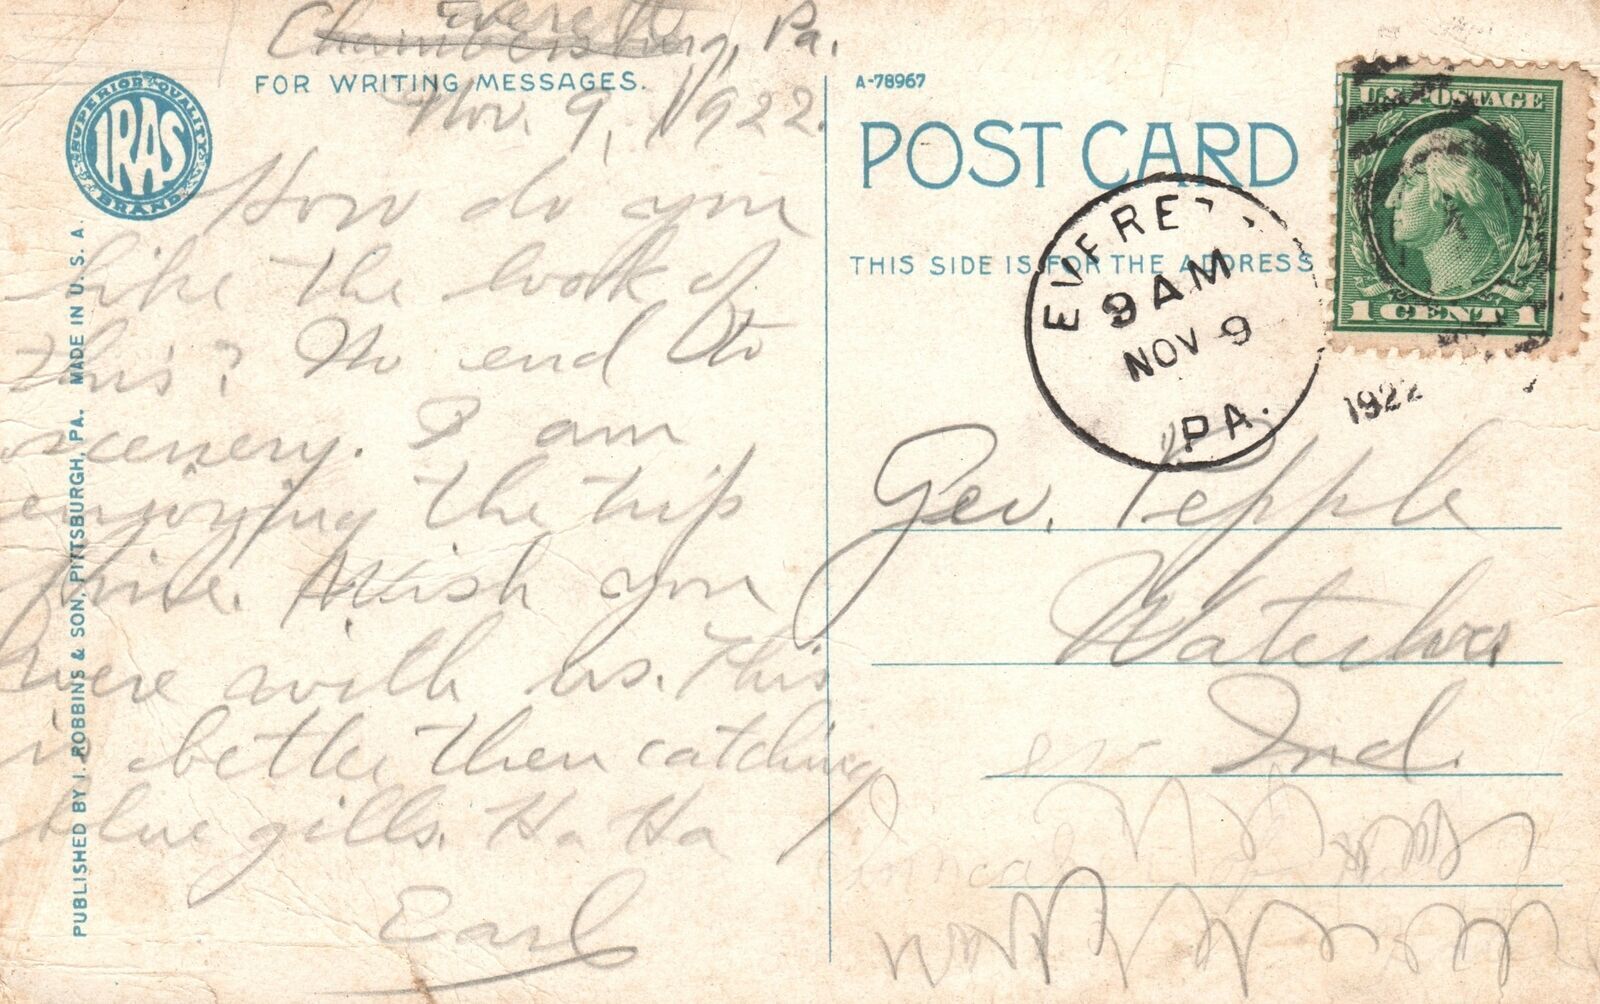 Everett
Chambersburg, Pa.
FOR WRITING MESSAGES.
Nov. 9, 1922.
How do you
like the look of
this? No end to
scenery. I am
enjoying the trip
fine. Wish you
were with us. This
is better then catching
blue gills. Ha Ha
Earl
SUPERIOR QUALITY
IRAS
BRAND
PUBLISHED BY I. ROBBINS & SON, PITTSBURGH, PA. MADE IN U. S. A.
A-78967
POST CARD
THIS SIDE IS FOR THE ADDRESS
U.S. POSTAGE
1 CENT 1
EVERETT
9 AM
NOV 9
1922
PA.
Geo. Pepple
Waterloo
Ind.